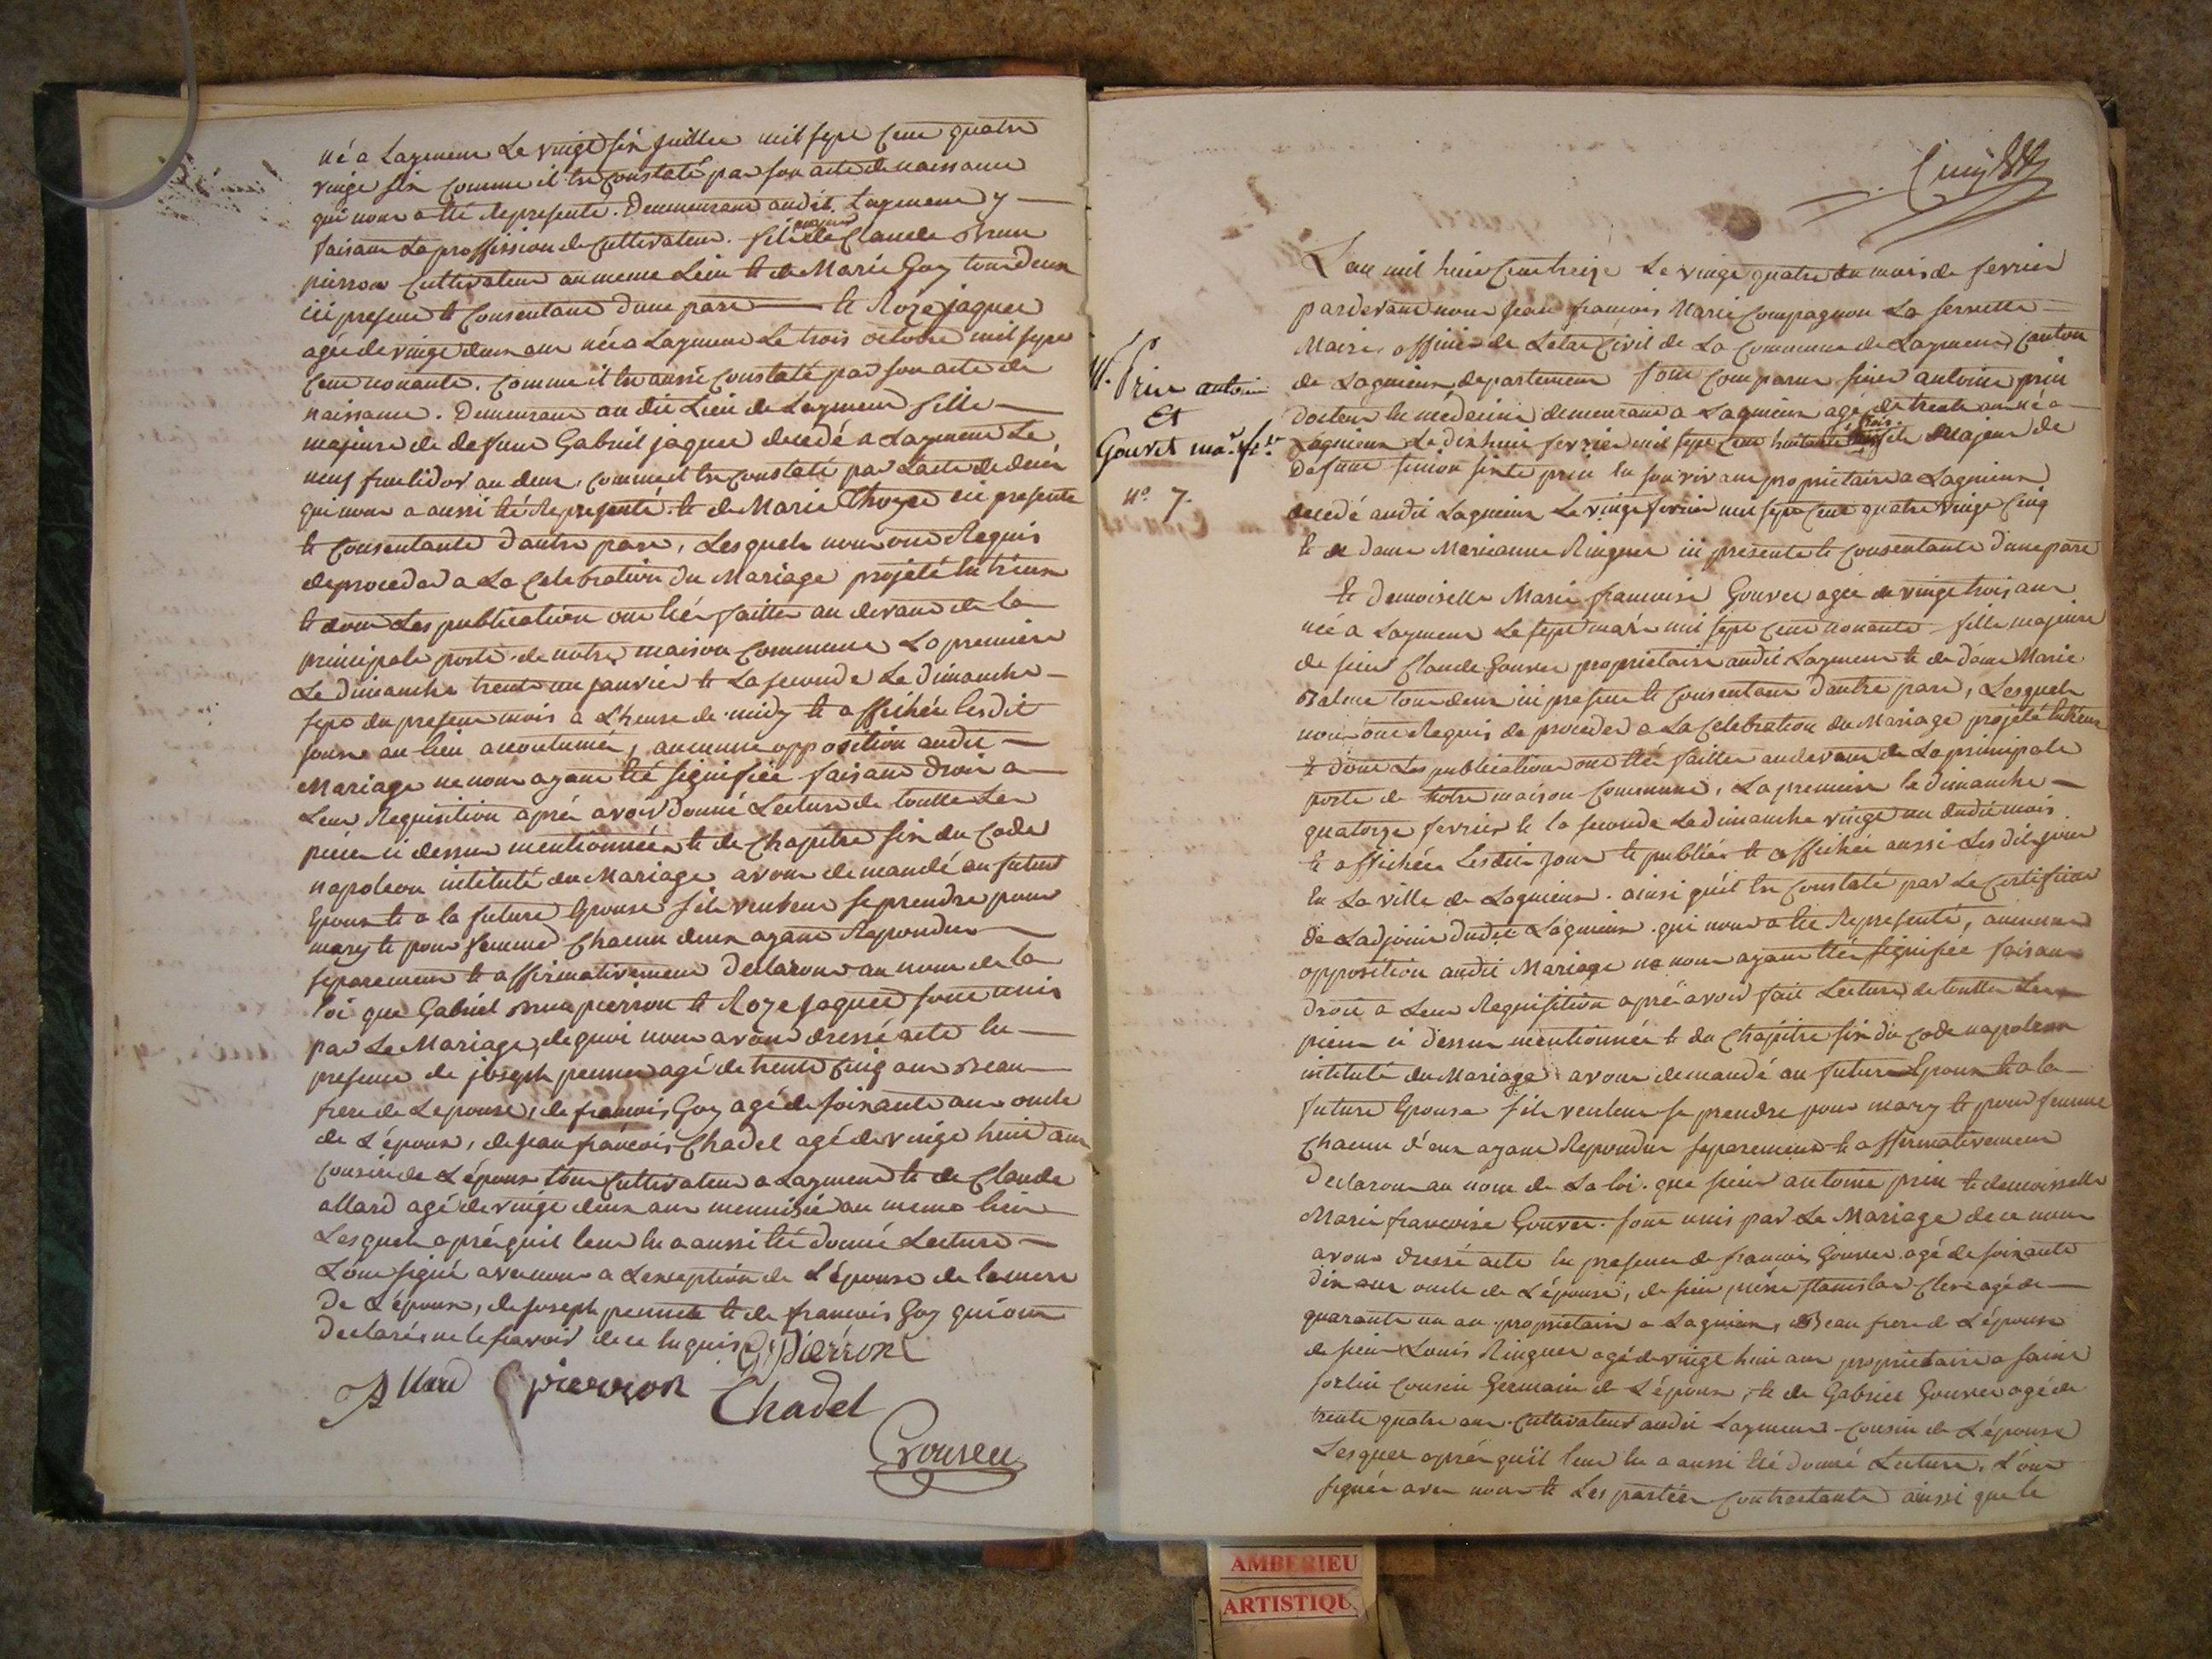 né a Laymeux Le vingt six juillet mil sept Cent quatre
vingt six Comme il est Constaté par son acte de naissance
qui nous a été Representé. Demeurant audit. Laymeux y
faisant La proffission de Cultivateur. fils majeur de Claude Brun
pierron Cultivateur au meme Lieu et de Marie Goy tous deux
ici present et Consentant d'une part et Roze jaquet
agée de vingt deux ans née a Laymeux Le trois octobre mil sept
Cent nonante. Comme il est aussi Constaté par son acte de
naissance. Demeurant au dit Lieu de Laymeux fille
majeure de defunt Gabriel jaquet decedé a Laymeux Le
neuf fructidor an deux, comme il est Constaté par L'acte de deces
qui nous a aussi été Representé et de Marie Thoyre ici presente
et Consentante d'autre part, Lesquels nous ont Requis
de proceder a La Celebration du Mariage projeté entr'eux
et dont Les publication ont été faittes au devant de la
principale porte de notre maison Commune La premiere
Le dimanche trente un janvier et La seconde Le dimanche
sept du present mois a L'heure de midy et affichée lesdit
jours au lieu acoutumée, aucunne opposition audit
Mariage ne nous ayant été signifiée faisant droit a
Leur Requisition après avoir donné Lecture de touttes Les
pieces ci dessus mentionnées et de Chapitre six du Code
napoleon intitulé du Mariage avons demandé au futur
Epoux et a la future Epouse s'ils veulent se prendre pour
mary et pour femme Chacun deux ayant Repondus
separement et affirmativement Declarons au nom de la
loi que Gabriel Brun pierron et Roze jaquet sont unis
par Le Mariage, de quoi nous avons dressé acte en
presence de joseph pennet agé de trente Cinq ans Beau
frere de L'epouse, de francois Goy agé de soixante ans oncle
de L'époux, de jean francois Chadel agé de vingt huit ans
Cousin de L'époux tous Cultivateur a Laymeux et de Claude
allard agé de vingt deux ans menuisié au meme lieu
Lesquels après qu'il leur en a aussi été donné Lecture
L'ont signé avec nous a L'exception de L'épouse de la mere
de L'époux, de joseph pennet et de francois Goy qui ont
declarés ne le savoir de ce enquis G: Piérron
Allard C pierron Chadel
Crouseu
L'an mil huit Cent treize Le vingt quatre du mois de fevrier
pardevant nous jean francois Marie Compagnon La servette
Maire, officier de L'etat Civil de La Commune de Laymeux Canton
de Lagnieux departement sont Comparus sieur antoine prin
docteur en médecine demeurant a Lagnieux agé de trente ans né a
Lagnieux Le dix huit fevrier mil sept Cent huitante trois fils Majeur de
Defunt simon sixte prin en son vivant propriétaire a Lagnieux
M. Prin antoine
Et
Gouvet mar. fse
n°. 7.
decedé audit Lagnieux Le vingt fevrier mil sept Cent quatre vingt Cinq
et de dame Marianne Ringuet ici presente et Consentante d'une part
et demoiselle Marie francoise Gouvet agée de vingt trois ans
née a Laymeux Le sept mars mil sept Cent nonante fille majeure
de sieur Claude Gouvet propriétaire audit Laymeux et de dame Marie
Balme tous deux ici present et Consentant d'autre part, Lesquels
nous ont Requis de proceder a La Celebration du Mariage projeté entr'eux
et dont Les publications ont été faittes au devant de La principale
porte de notre maison Commune, La premiere le dimanche
quatorze fevrier et la seconde Le dimanche vingt un dudit mois
et affichées Lesdits jour et publiée et affichée aussi Lesdits jour
en La ville de Lagnieux. ainsi qu'il est Constaté par Le Certificat
de L'adjoint dudit Lagnieux. qui nous a été Representé, aucunne
opposition audit Mariage ne nous ayant été signifiée faisant
droit a Leur Requisition après avoir fait Lecture de touttes Les
pieces ci dessus mentionnée et du Chapitre six du Code napoleon
intitulé du Mariage avons demandé au futur Epoux et a la
future Epouse s'ils veulent se prendre pour mary et pour femme
Chacun d'eux ayant Repondus separement et affirmativement
Declarons au nom de La loi. que sieur antoine prin et demoisselle
Marie francoise Gouvet. sont unis par Le Mariage de ce nous
avons dressé acte en presence de francois Gouvet agé de soixante
dix ans oncle de L'épouse, de sieur pierre stanislas Clerc agé de
quarante un an proprietaire a Lagnieux, Beau frere de L'époux
de sieur Louis Ringuet agé de vingt huit ans proprietaire a saint
sorlin Cousin Germain de L'époux, et de Gabriel Gouvet agé de
trente quatre ans Cultivateur audit Laymeux Cousin de L'épouse
Lesquels après qu'il leur en a aussi été donné Lecture, L'ont
signée avec nous et Les parties Contractante ainsi que le
AMBERIEU
ARTISTIQU